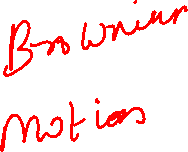 Brownian
Motion